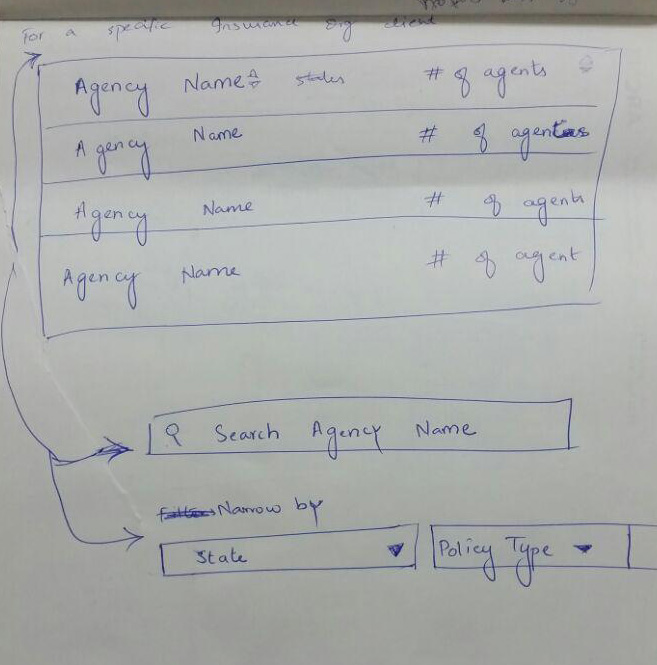 For a specific Insurance Org client
Agency Name states # of agents
Agency Name # of agents
Agency Name # of agents
Agency Name # of agent
Search Agency Name
Narrow by
State Policy Type